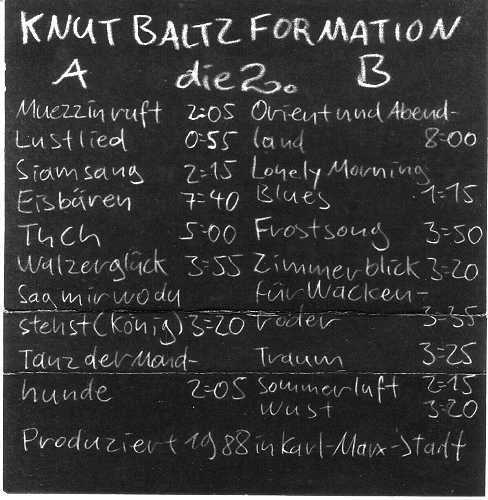 KNUT BALTZ FORMATION
A die 2. B
Muezzin ruft 2=05
Lustlied 0=55
Siamsang 2=15
Eisbären 7=40
TuCh 5=00
Walzerglück 3=55
Sag mir wo du
stehst (König) 3=20
Tanz der Mond-
hunde 2=05
Orient und Abend-
land 8=00
Lonely Morning
Blues 1=15
Frostsong 3=50
Zimmerblick 3=20
für Wacken-
roder 3=35
Traum 3=25
Sommerluft 2=15
Wust 3=20
Produziert 1988 in Karl-Marx-Stadt